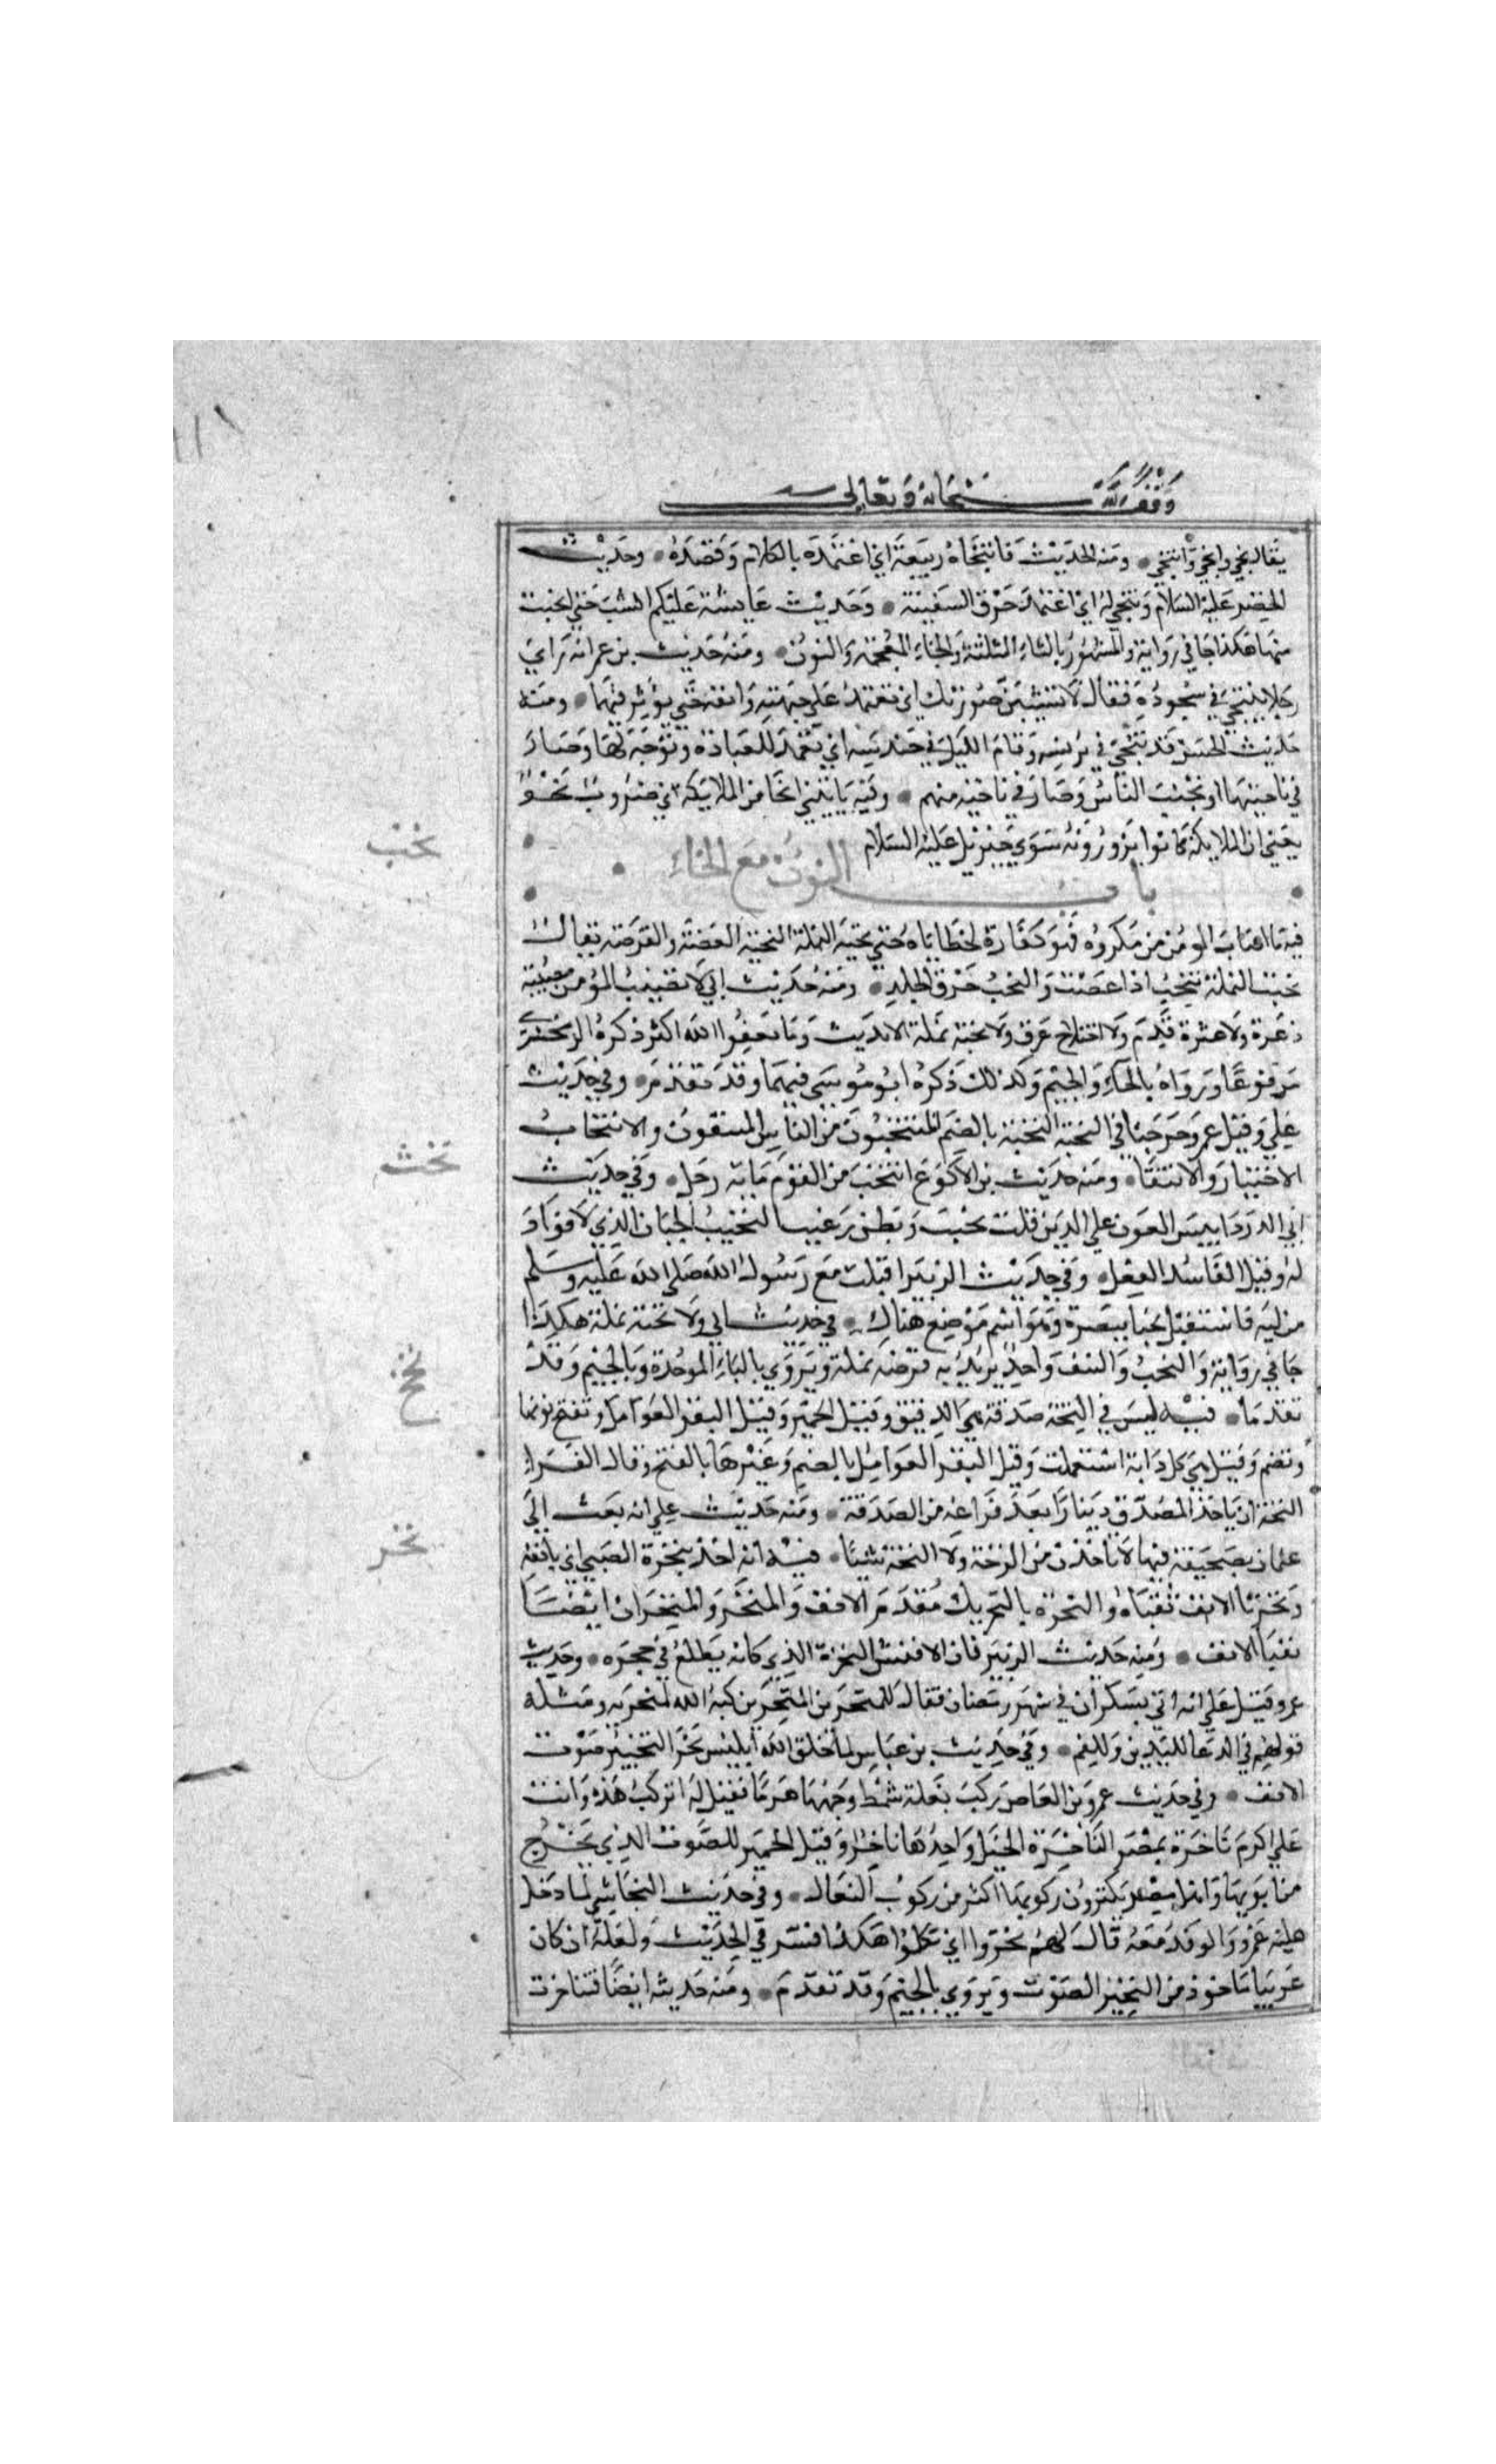 وقف لله سبحانه وتعالى
يقال نحي وانحي وانتحي ومنه الحديث فانتحاه ربيعة اي اعتمده بالكلام وقصده وحديث
الخضر عليه السلام وتنحي له اي اعتمد خرق السفينة وحديث عايشة عليكم انشب حتي انحيت
منها هكذا جا في رواية والمشهور بالثاء المثلثة والخاء المعجمة والنون ومنه حديث بن عمر انه راي
رجلا ينتحي في سجوده فقال لا تشينن صورتك اي تعتمد علي جبهته وانفه حتي يؤثر فيهما ومنه
حديث الحسن قد تنحي في برنسه وقام الليل في حندسه اي تعمد للعبادة وتوجه لها وصار
في ناحيتها او تجنب الناس وصار في ناحية منهم وفيه ياتيني انحا من الملايكة اي ضروب نحو
يعني ان الملايكة كانوا يزورونه سوي جبريل عليه السلام
باب النون مع الخاء
نخب
فيه ما اصاب المومن من مكروه فهو كفارة لخطاياه حتي نخبة النملة النخبة العضة والقرصة يقال
نخبت النملة تنخب اذا عضت والنخب خرق الجلد ومنه حديث ابي لا تصيب المؤمن مصيبة
ذعرة ولا عثرة قدم ولا اختلاج عرق ولا نخبة نملة الا بذنب وما يعفوا الله اكثر ذكره الزمخشري
مرفوعا ورواه بالخاء والجيم وكذلك ذكره ابو موسي فيهما وقد تقدم وفي حديث
علي وقيل عمر وخرجنا في النخبة النخبة بالضم المنتخبون من الناس المنتقون والانتخاب
الاختيار والانتقا ومنه حديث بن الاكوع انتخب من القوم ماية رجل وفي حديث
ابي الدردا بيس العون علي الدين قلب نخيب وبطن رغيب النخيب الجبان الذي لا فواد
له وقيل الفاسد الفعل وفي حديث الزبير اقبلت مع رسول الله صلى الله عليه وسلم
نخث
من ليه فاستقبل نخبا ببصره وهو اسم موضع هناك في حديث ابي ولا نخثة نملة هكذا
جا في رواية والنخب والنتف واحد يريد به قرصة نملة ويروي بالباء الموحدة وبالجيم وقد
نخخ
تقدما فيه ليس في النخة صدقة هي الرقيق وقيل الحمير وقيل البقر العوامل وتفتح نونها
وتضم وقيل هي كل دابة استعملت وقيل البقر العوامل بالضم وغيرها بالفتح وقال الفراء
النخة ان ياخذ المصدق دينارا بعد فراغه من الصدقة ومنه حديث علي انه بعث الي
نخر
عثمان بصحيفة فيها لا تاخذن من الزخة ولا النخة شيئا فيه انه اخذ بنخرة الصبي اي بانفه
ونخرتا الانف ثقباه والنخرة بالتحريك مقدم الانف والمنخر والمنخران ايضا
نقبا الانف ومنه حديث الزبرقان الافطس النخرة الذي كانه يطلع في حجره وحديث
عمر وقيل علي انه اتي بسكران في شهر رمضان فقال للمنخرين للمنخرين كبه الله لمنخريه ومثله
قولهم في الدعا لليدين وللفم وفي حديث بن عباس لما خلق الله ابليس نخر النخير صوت
الانف وفي حديث عمرو بن العاص ركب بغلة شمط وجهها هرما فقيل له اتركب هذه وانت
علي اكرم ناخرة بمصر الناخرة الخيل واحدها ناخر وقيل الحمير للصوت الذي يخرج
من انوفها واهل مصر يكثرون ركوبها اكثر من ركوب البغال وفي حديث النجاشي لما دخل
عليه عمرو والوفد معه قال لهم نخروا اي تكلموا هكذا فسر في الحديث ولعله ان كان
عربيا ماخوذ من النخير الصوت ويروي بالجيم وقد تقدم ومنه حديثه ايضا فتناخرت